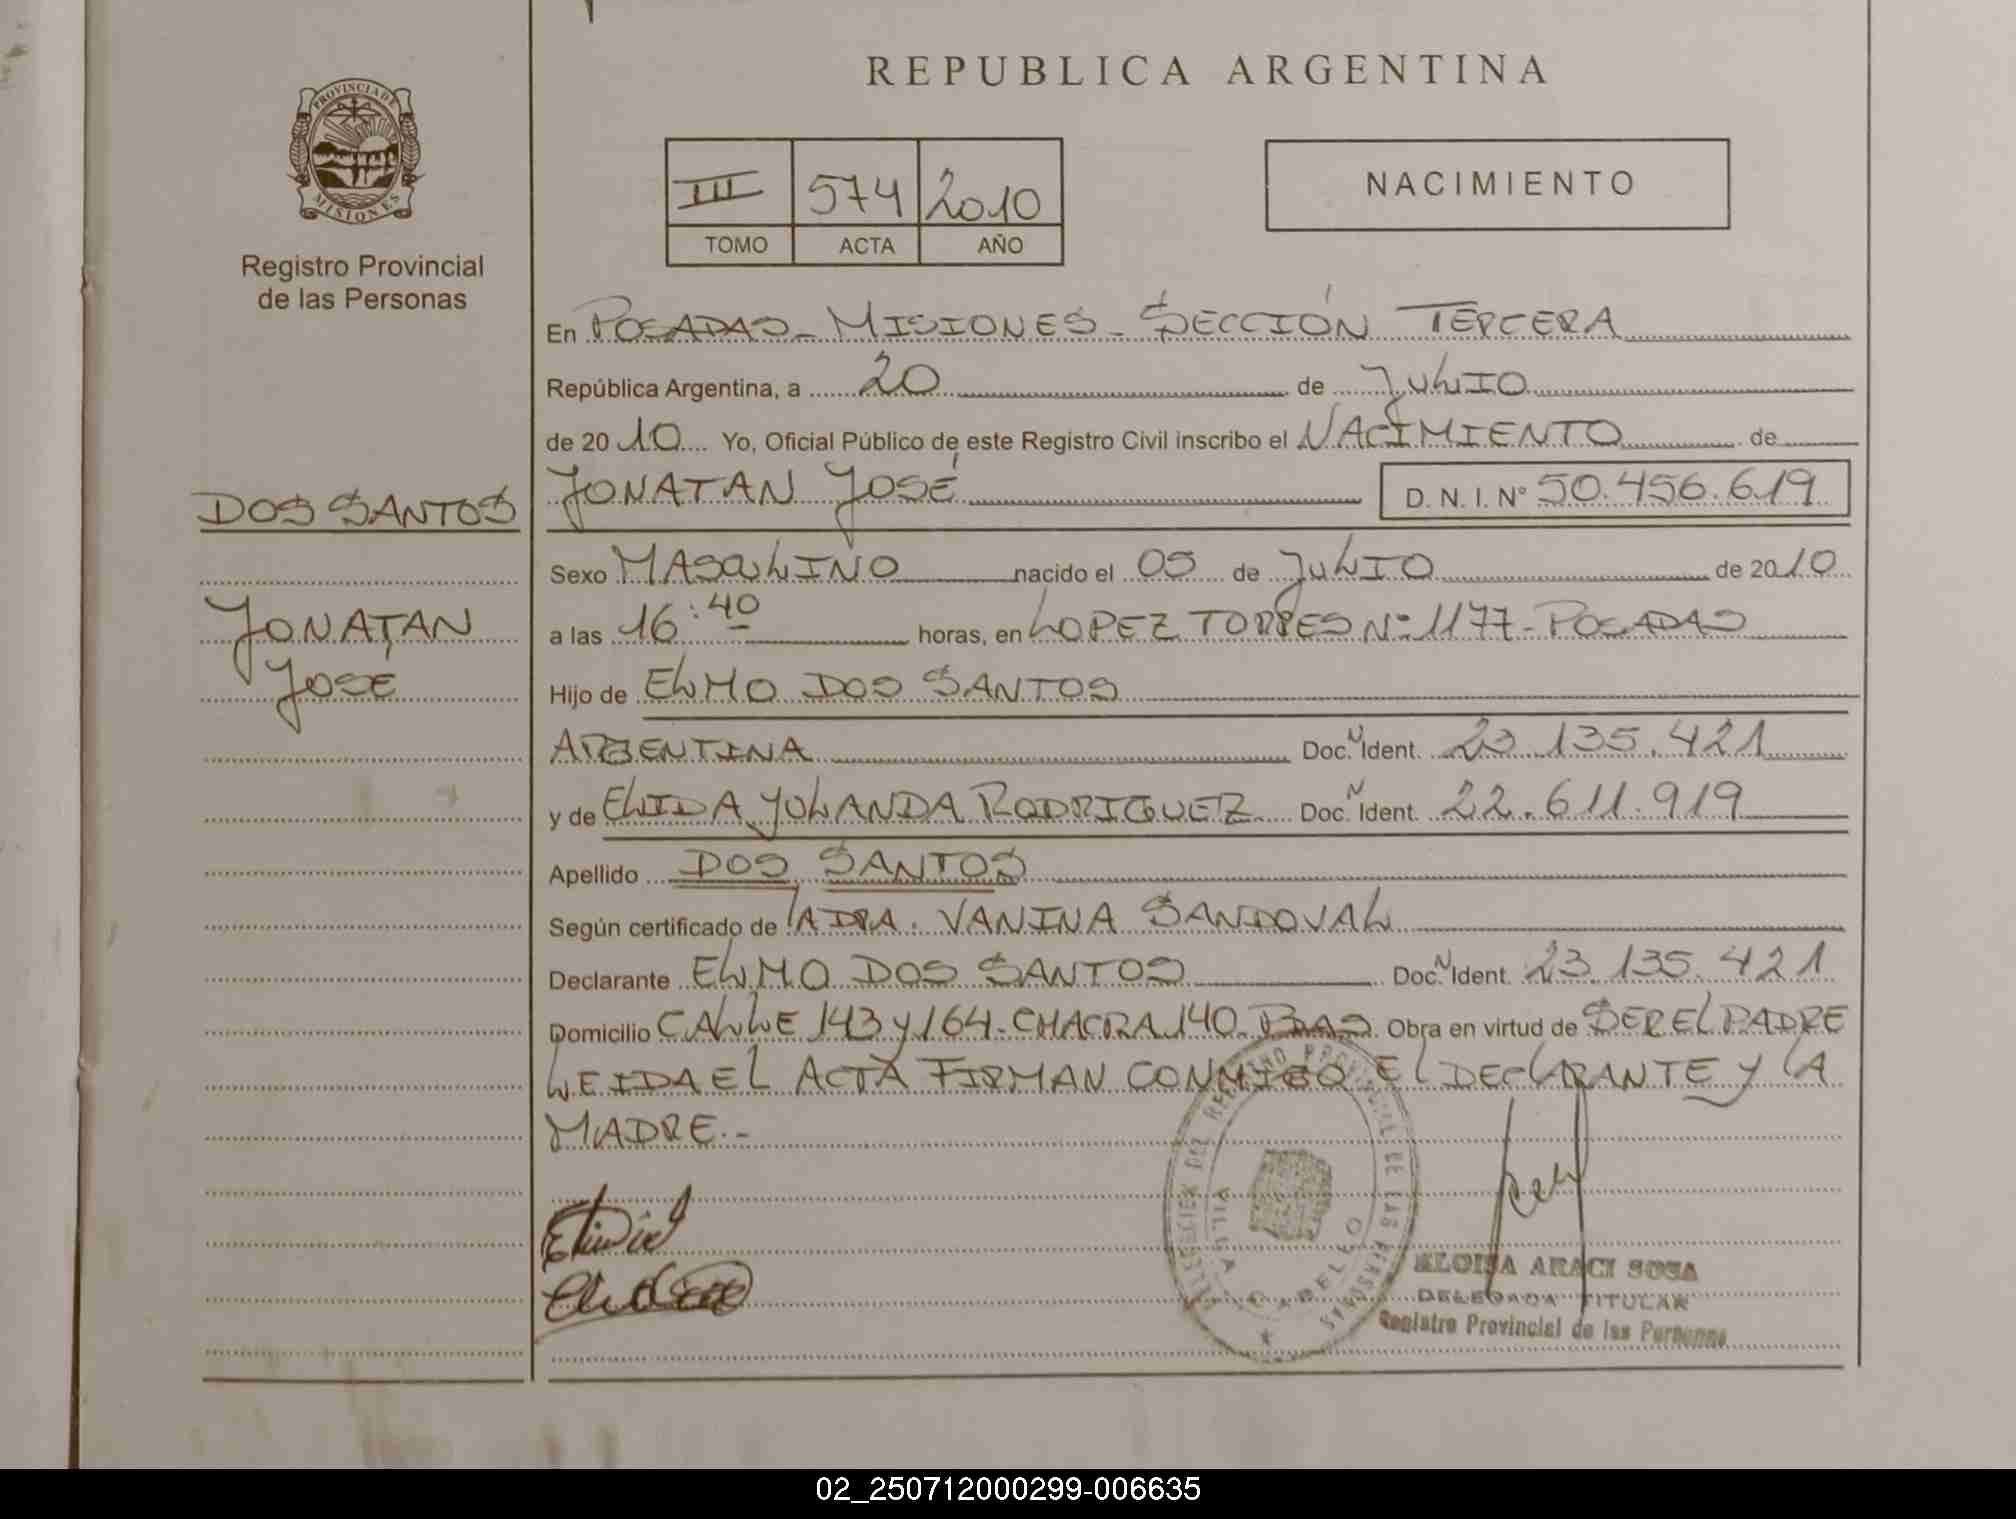 REPUBLICA ARGENTINA
PROVINCIA DE
MISIONES
Registro Provincial
de las Personas
III 574 2010
TOMO ACTA AÑO
NACIMIENTO
En POSADAS - MISIONES - SECCIÓN TERCERA
República Argentina, a 20 de JULIO
de 2010 Yo, Oficial Público de este Registro Civil inscribo el NACIMIENTO de
DOS SANTOS
JONATAN JOSÉ D. N. I. N° 50.456.619
Sexo MASCULINO nacido el 05 de JULIO de 2010
JONATAN
JOSÉ
a las 16:40 horas, en LOPEZ TORRES N° 1177 - POSADAS
Hijo de ELMO DOS SANTOS
ARGENTINA Doc. N Ident. 23.135.421
y de ELIDA YOLANDA RODRIGUEZ Doc. N Ident. 22.611.919
Apellido DOS SANTOS
Según certificado de VANINA SANDOVAL
Declarante ELMO DOS SANTOS Doc. N Ident. 23.135.421
Domicilio CALLE 143 y 164 - CHACRA 140 - Obra en virtud de SER EL PADRE
LEIDA EL ACTA FIRMAN CONMIGO EL DECLARANTE Y LA
MADRE.-
DEL REGISTRO PROVINCIAL DE LAS PERSONAS
VILLA CABELLO
ELOISA ARACI SOSA
DELEGADA TITULAR
Registro Provincial de las Personas
02_250712000299-006635